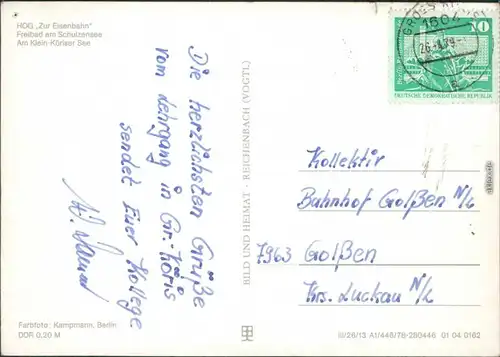 HOG „Zur Eisenbahn"
Freibad am Schulzensee
Am Klein-Köriser See
Die herzlichsten Grüße
vom Lehrgang in Gr.-Köris
sendet Euer Kollege
Farbfoto: Kampmann, Berlin
DDR 0,20 M
BILD UND HEIMAT · REICHENBACH (VOGTL)
1604
10
DEUTSCHE DEMOKRATISCHE REPUBLIK
Kollektiv
Bahnhof Golßen N/L
7963 Golßen
Krs. Luckau N/L
III/26/13 A1/446/78-280446 01 04 0162